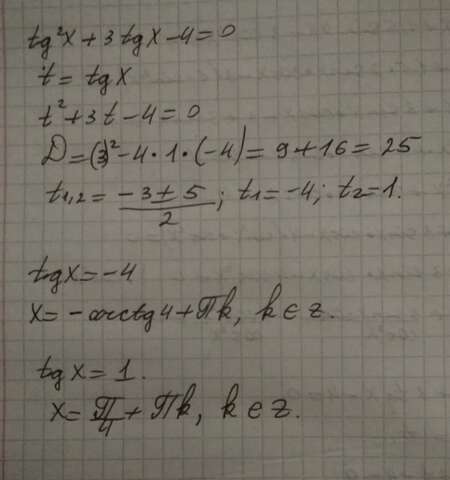 tg²x + 3 tgx - 4 = 0
t = tgx
t² + 3t - 4 = 0
D = (3)² - 4 · 1 · (-4) = 9 + 16 = 25
t₁,₂ = (-3 ± 5)/2 ; t₁ = -4; t₂ = 1.
tgx = -4
x = -arctg4 + Пk, k ∈ z.
tgx = 1.
x = П/4 + Пk, k ∈ z.